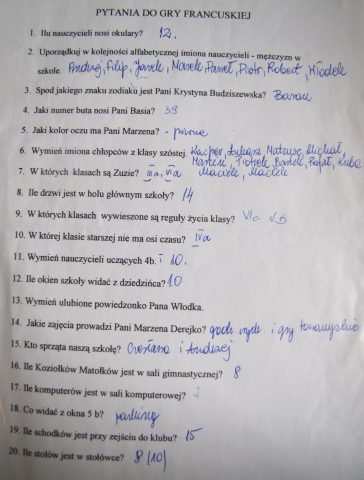 PYTANIA DO GRY FRANCUSKIEJ
1. Ilu nauczycieli nosi okulary? 12.
2. Uporządkuj w kolejności alfabetycznej imiona nauczycieli - mężczyzn w
szkole. Andrzej, Filip, Janek, Marek, Paweł, Piotr, Robert, Włodek
3. Spod jakiego znaku zodiaku jest Pani Krystyna Budziszewska? Baran
4. Jaki numer buta nosi Pani Basia? 39
5. Jaki kolor oczu ma Pani Marzena? - piwne
6. Wymień imiona chłopców z klasy szóstej. Kacper, Łukasz, Mateusz, Michał,
Marcin, Piotrek, Bartek, Rafał, Kuba
7. W których klasach są Zuzie? IIIa, VIa Maciek, Maciek
8. Ile drzwi jest w holu głównym szkoły? 14
9. W których klasach wywieszone są reguły życia klasy? VIa
10. W której klasie starszej nie ma osi czasu? IVa
11. Wymień nauczycieli uczących 4b. 10.
12. Ile okien szkoły widać z dziedzińca? 10
13. Wymień ulubione powiedzonko Pana Włodka.
14. Jakie zajęcia prowadzi Pani Marzena Derejko? godz. wych. i gry
15. Kto sprząta naszą szkołę? i Andrzej
16. Ile Koziołków Matołków jest w sali gimnastycznej? 8
17. Ile komputerów jest w sali komputerowej?
18. Co widać z okna 5 b? parking
19. Ile schodków jest przy zejściu do klubu? 15
20. Ile stołów jest w stołówce? 8 (10)